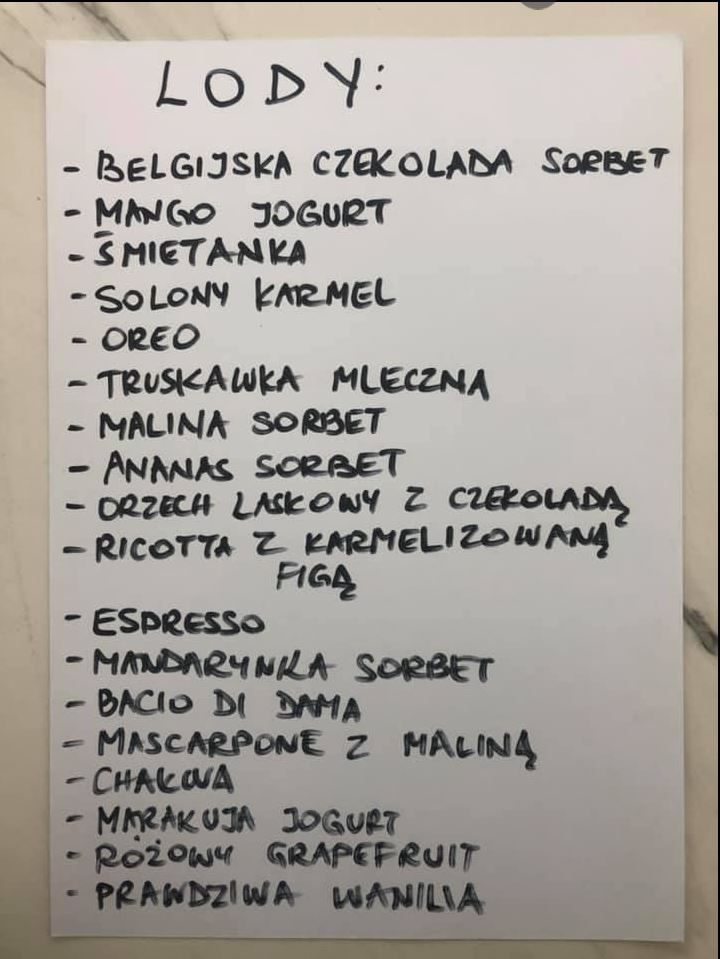 LODY:
- BELGIJSKA CZEKOLADA SORBET
- MANGO JOGURT
- ŚMIETANKA
- SOLONY KARMEL
- OREO
- TRUSKAWKA MLECZNA
- MALINA SORBET
- ANANAS SORBET
- ORZECH LASKOWY Z CZEKOLADĄ
- RICOTTA Z KARMELIZOWANĄ
FIGĄ
- ESPRESSO
- MANDARYNKA SORBET
- BACIO DI DAMA
- MASCARPONE Z MALINĄ
- CHAŁWA
- MARAKUJA JOGURT
- RÓŻOWY GRAPEFRUIT
- PRAWDZIWA WANILIA